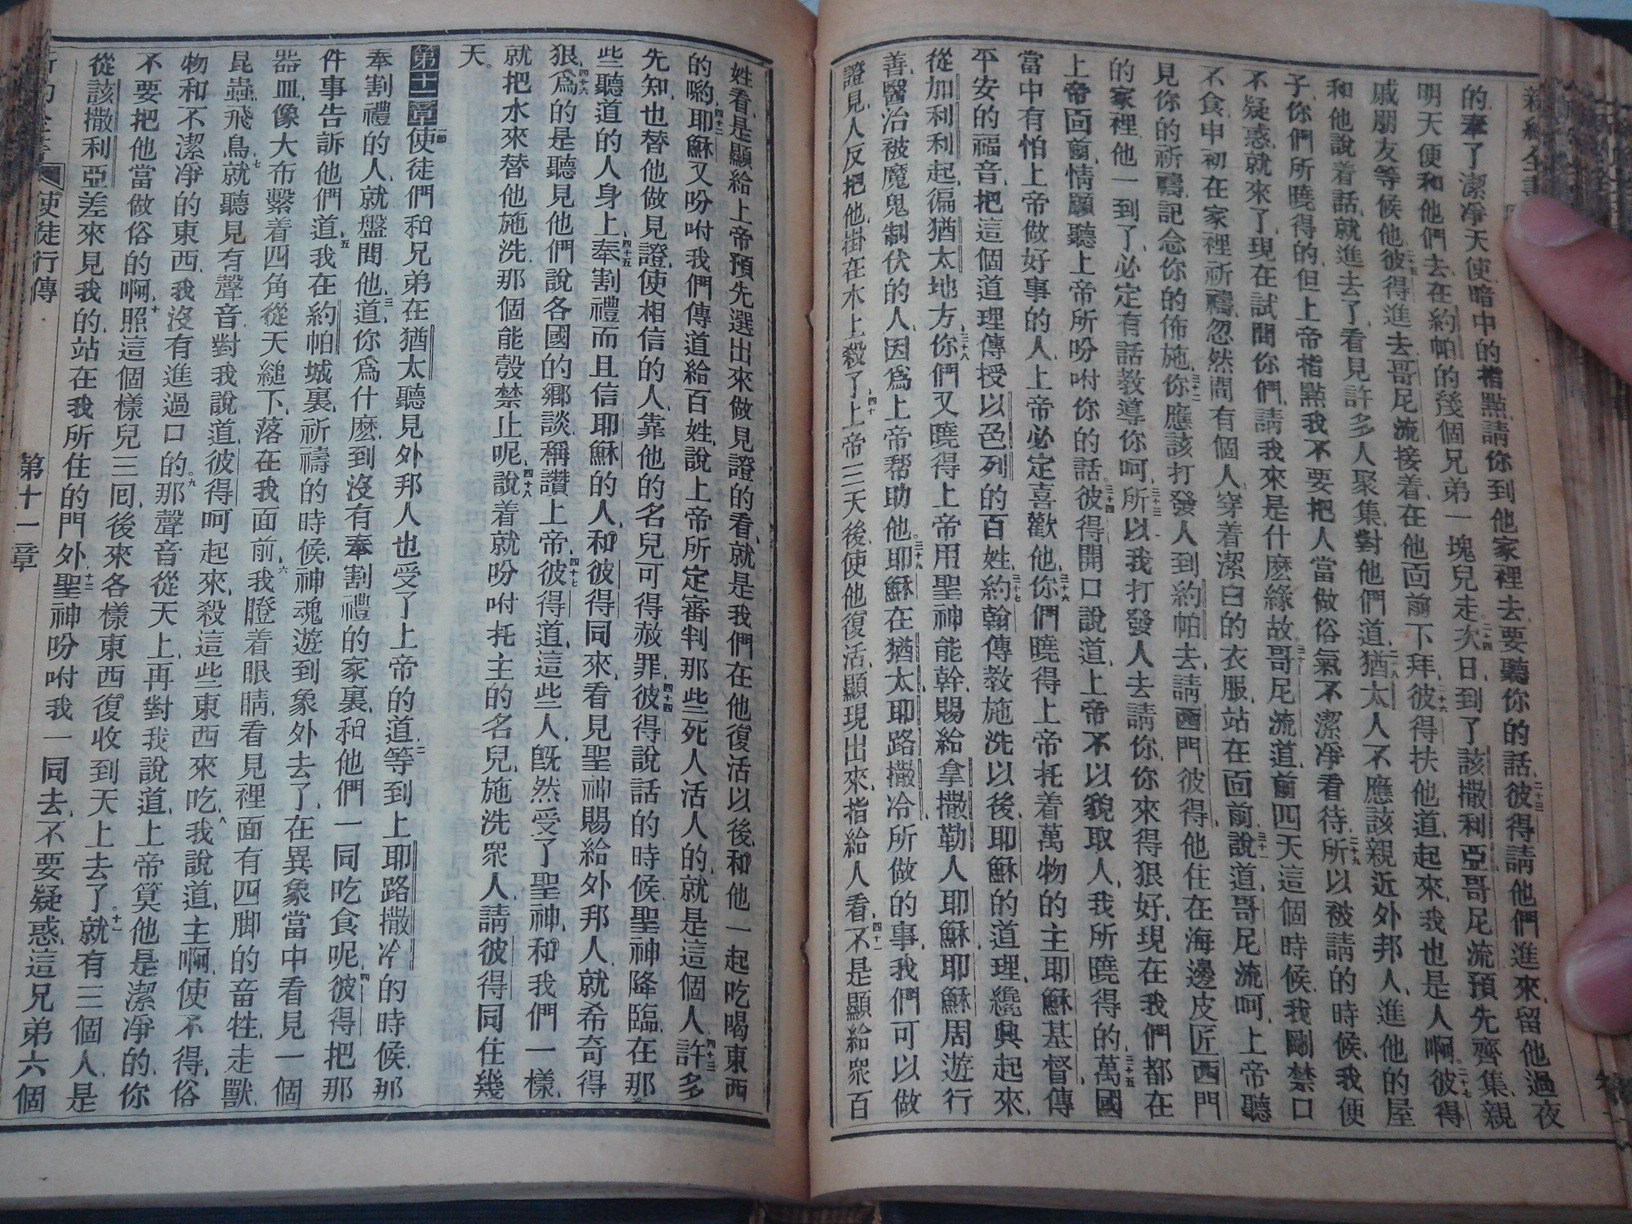 新約全書
的奉了潔凈天使暗中的指點請你到他家裡去要聽你的話二十三彼得請他們進來留他過夜
明天便和他們去在約帕的幾個兄弟一塊兒走二十四次日到了該撒利亞哥尼流預先齊集親
戚朋友等候他二十五彼得進去哥尼流接着在他面前下拜二十六彼得扶他道起來我也是人啊二十七彼得
和他說着話就進去了看見許多人聚集二十八對他們道猶太人不應該親近外邦人進他的屋
子你們所曉得的但上帝指點我不要把人當做俗氣不潔凈看待二十九所以被請的時候我便
不疑惑就來了現在試問你們請我來是什麼緣故三十哥尼流道前四天這個時候我剛禁口
不食申初在家裡祈禱忽然間有個人穿着潔白的衣服站在面前三十一說道哥尼流呵上帝聽
見你的祈禱記念你的佈施三十二你應該打發人到約帕去請西門彼得他住在海邊皮匠西門
的家裡他一到了必定有話教導你呵三十三所以我打發人去請你你來得狠好現在我們都在
上帝面前情願聽上帝所吩咐你的話三十四彼得開口說道上帝不以貌取人我所曉得的三十五萬國
當中有怕上帝做好事的人上帝必定喜歡他三十六你們曉得上帝托着萬物的主耶穌基督傳
平安的福音把這個道理傳授以色列的百姓三十七約翰傳教施洗以後耶穌的道理纔興起來
從加利利起徧猶太地方三十八你們又曉得上帝用聖神能幹賜給拿撒勒人耶穌耶穌周遊行
善醫治被魔鬼制伏的人因爲上帝帮助他三十九耶穌在猶太耶路撒冷所做的事我們可以做
證見人反把他掛在木上殺了四十上帝三天後使他復活顯現出來指給人看四十一不是顯給衆百
姓看是顯給上帝預先選出來做見證的看就是我們在他復活以後和他一起吃喝東西
的喲四十二耶穌又吩咐我們傳道給百姓說上帝所定審判那些死人活人的就是這個人四十三許多
先知也替他做見證使相信的人靠他的名兒可得赦罪四十四彼得說話的時候聖神降臨在那
些聽道的人身上四十五奉割禮而且信耶穌的人和彼得同來看見聖神賜給外邦人就希奇得
狠四十六爲的是聽見他們說各國的鄉談稱讚上帝四十七彼得道這些人既然受了聖神和我們一樣
就把水來替他施洗那個能彀禁止呢四十八說着就吩咐托主的名兒施洗衆人請彼得同住幾
天
第十一章一使徒們和兄弟在猶太聽見外邦人也受了上帝的道二等到上耶路撒冷的時候那
奉割禮的人就盤問他三道你爲什麼到沒有奉割禮的家裏和他們一同吃食呢四彼得把那
件事告訴他們道五我在約帕城裏祈禱的時候神魂遊到象外去了在異象當中看見一個
器皿像大布繫着四角從天縋下落在我面前六我瞪着眼睛看見裡面有四脚的畜牲走獸
昆蟲飛鳥七就聽見有聲音對我說道彼得呵起來殺這些東西來吃八我說道主啊使不得俗
物和不潔凈的東西我沒有進過口的九那聲音從天上再對我說道上帝算他是潔凈的你
不要把他當做俗的啊十照這個樣兒三回後來各樣東西復收到天上去了十一就有三個人是
從該撒利亞差來見我的站在我所住的門外十二聖神吩咐我一同去不要疑惑這兄弟六個
使徒行傳
第十一章